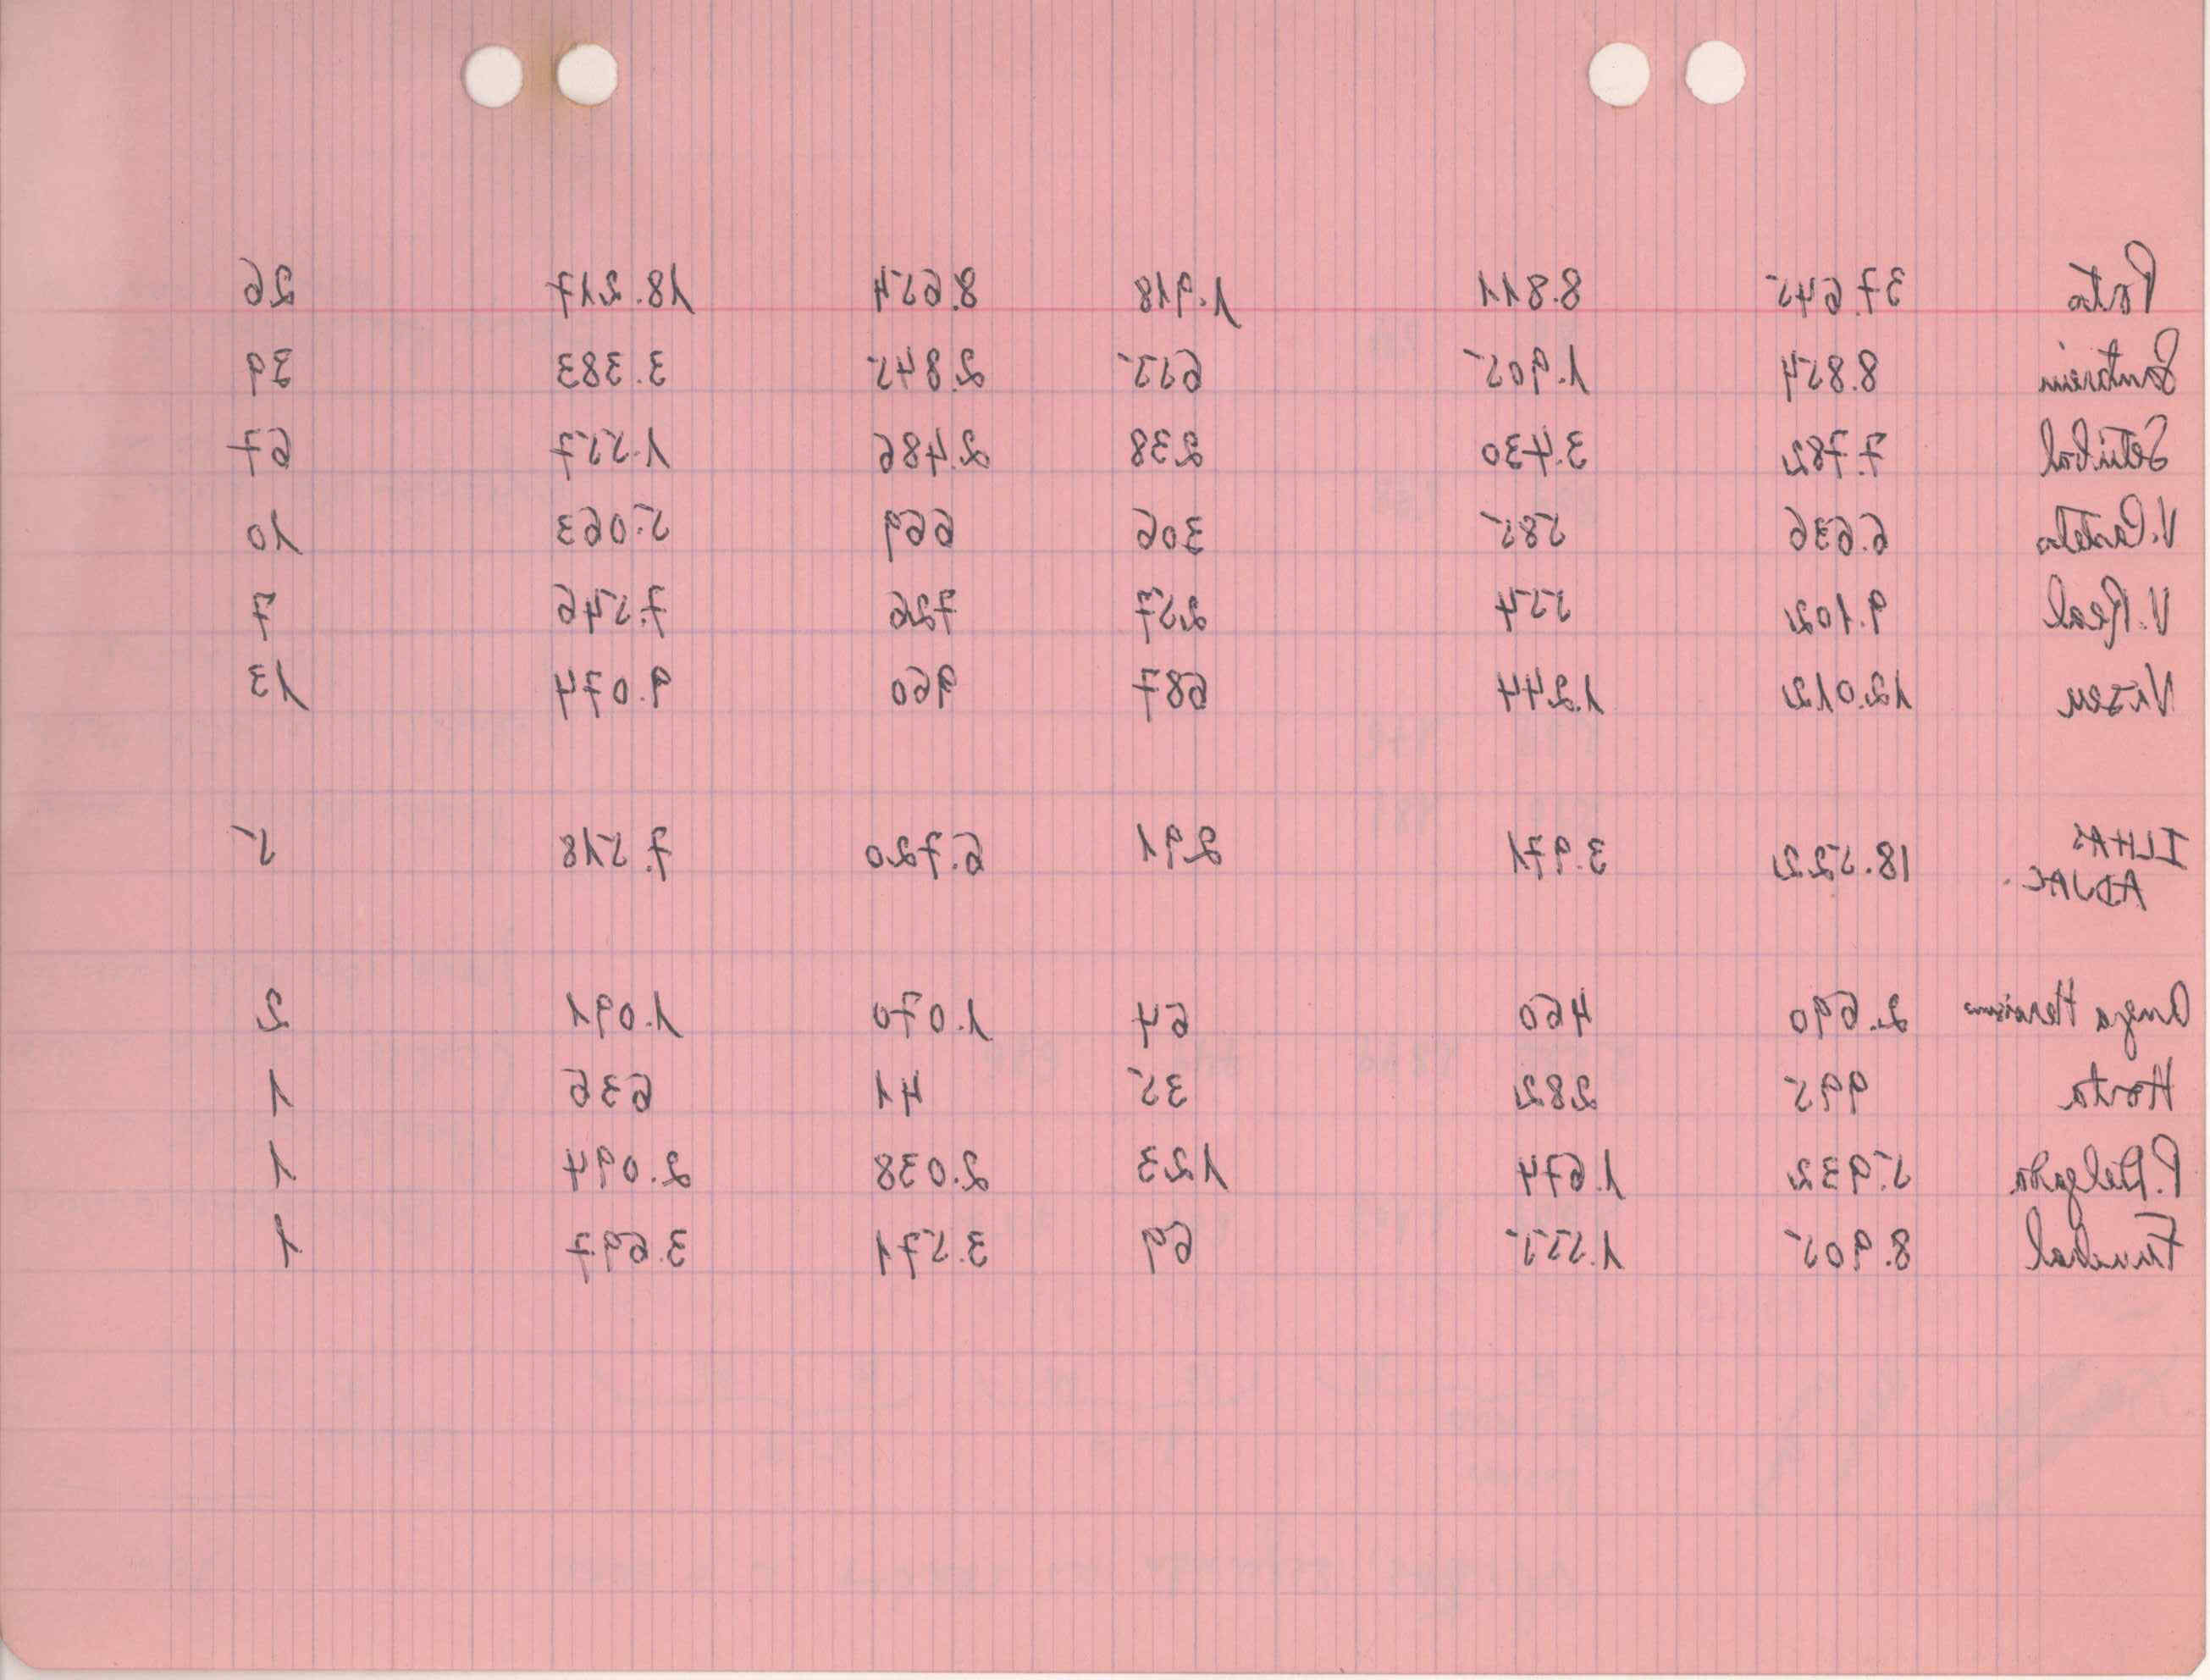 Porto 37.645 8.811 1.918 8.654 18.217 26
Santarém 8.854 1.905 655 2.845 3.383 39
Setúbal 7.782 3.430 238 2.486 1.557 67
V. Castelo 6.636 585 306 669 5.063 10
V. Real 9.102 554 257 726 7.546 7
Viseu 12.012 1.244 687 960 9.074 13
ILHAS
ADJAC. 18.522 3.971 291 6.720 7.518 5
Angra Heroismo 2.690 460 64 1.070 1.091 2
Horta 995 282 35 41 636 1
P. Delgada 5.932 1.674 123 2.038 2.094 1
Funchal 8.905 1.555 69 3.571 3.697 1